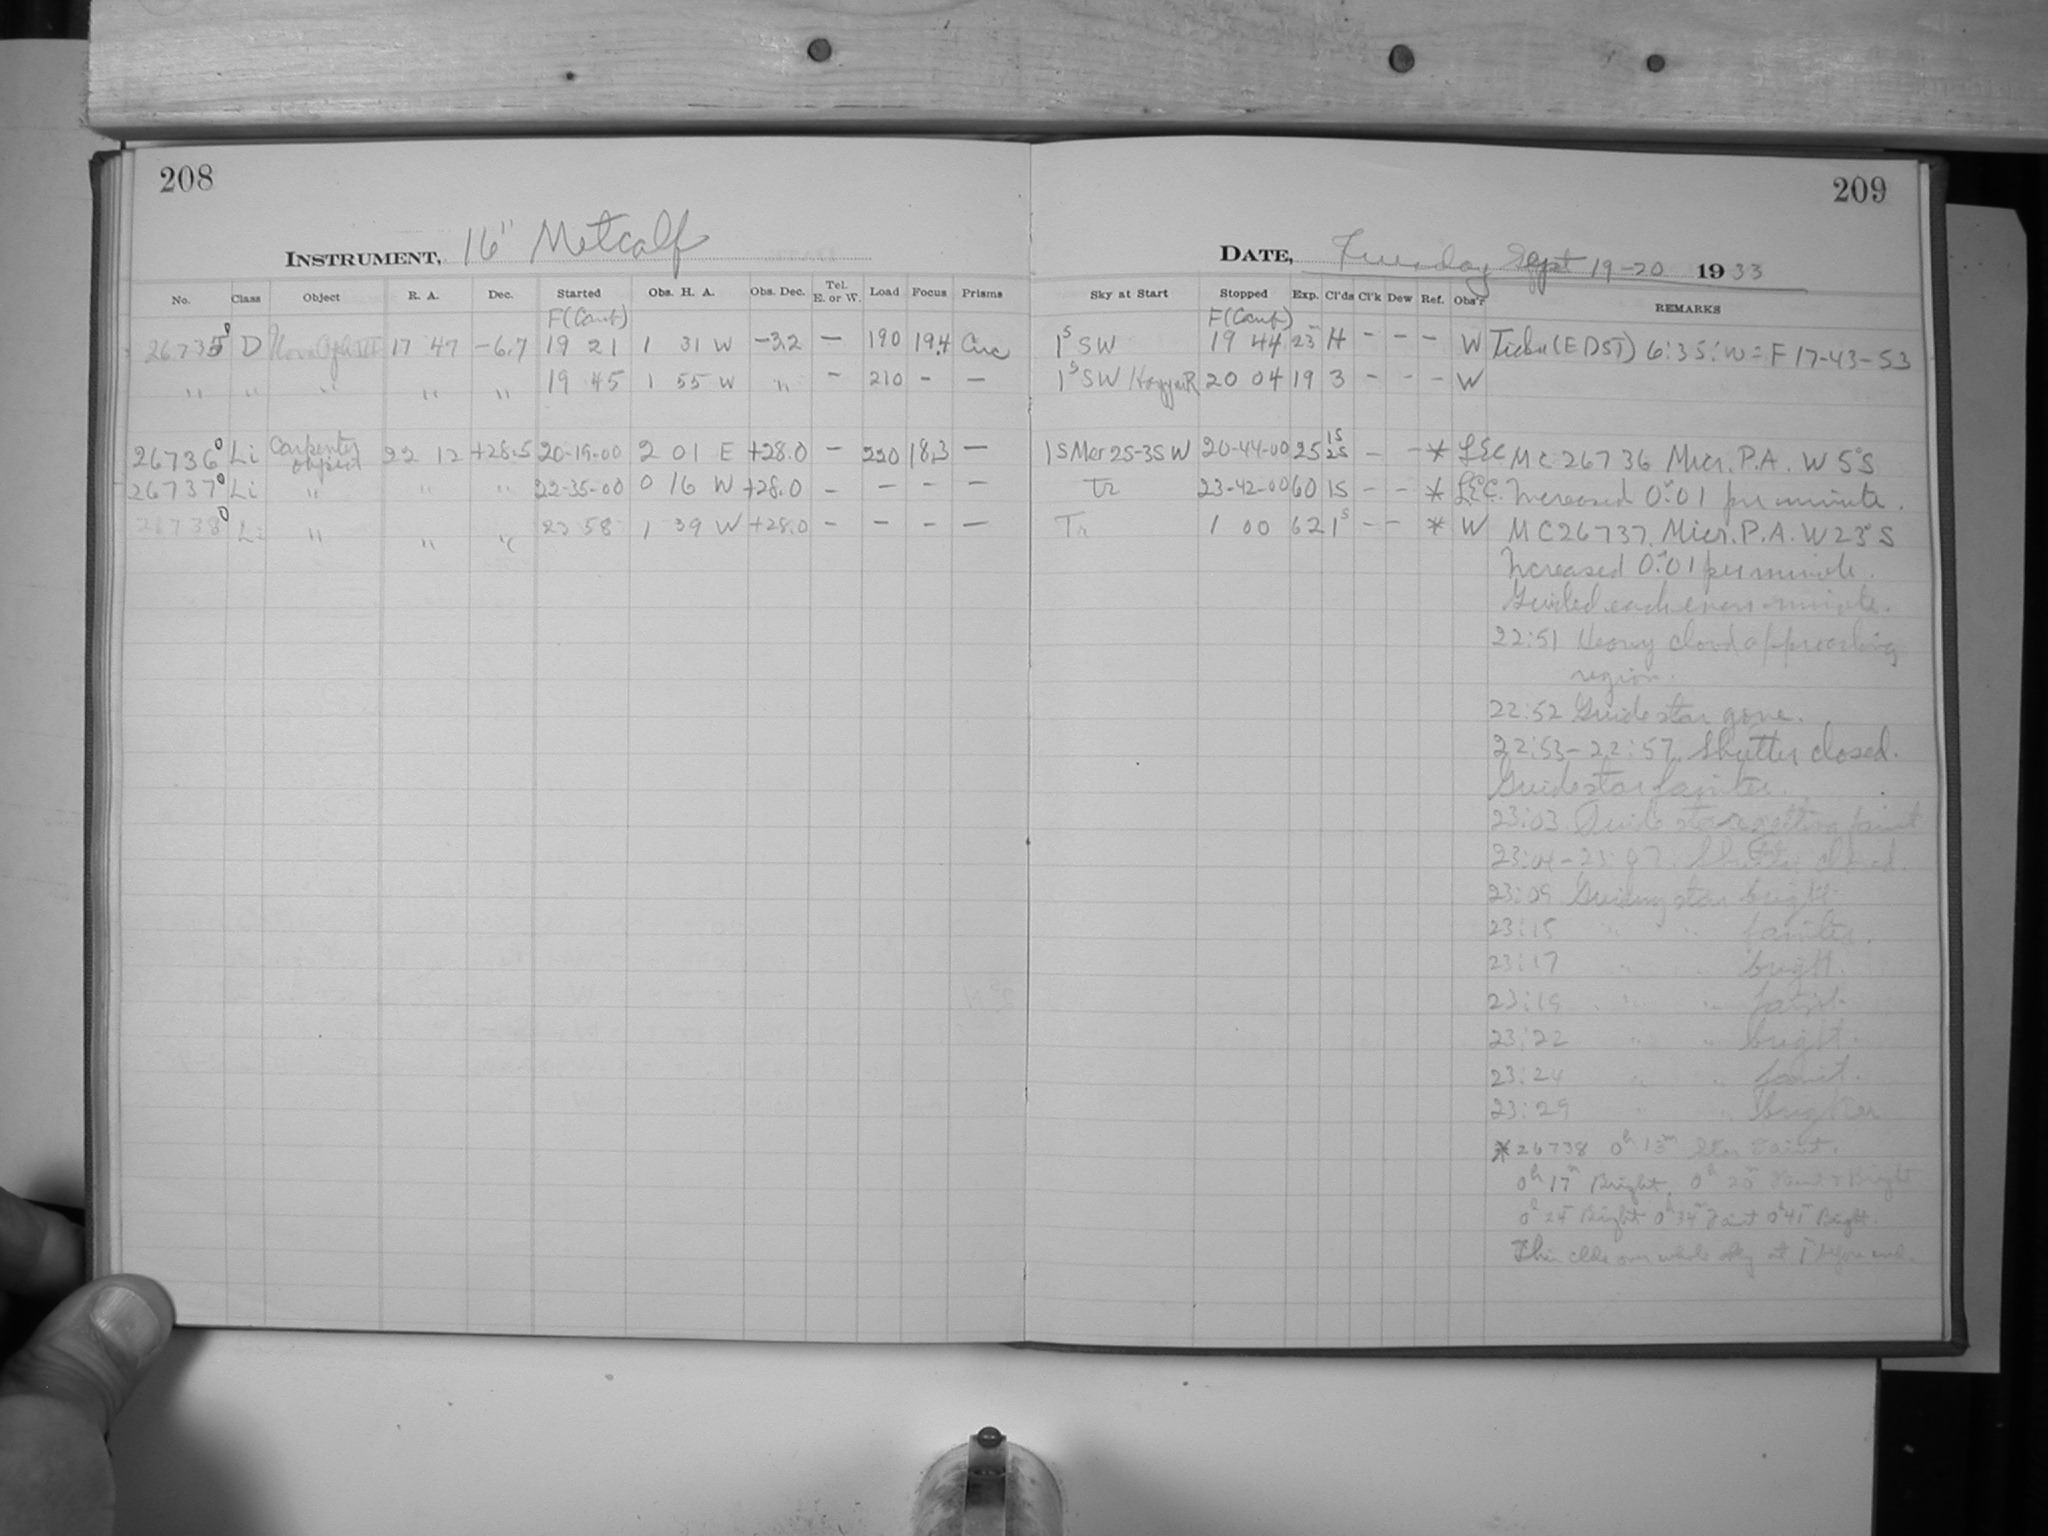 208
209
INSTRUMENT, 16" Metcalf
DATE, Tuesday Sept 19-20 1933
No. Class Object R. A. Dec. Started Obs. H. A. Obs. Dec. Tel. E. or W. Load Focus Prisms Sky at Start Stopped Exp. Cl'ds Cl'k Dew Ref. Obs'r REMARKS
F(Cont) F(Cont)
26735 D Nova Oph III 17 47 -6.7 19 21 1 31 W -3.2 - 190 19.4 Circ 1s SW 19 44 23m H - - - W Ticker (EDST) 6:35:00 = F 17-43-53
" " " " " 19 45 1 55 W " - 210 - - 1s SW 20 04 19 3 - - - W
26736 Li Carpenter object 22 12 +28.5 20-19-00 2 01 E +28.0 - 220 18.3 - 1S Mer 2S-3S W 20-44-00 25 1S 2S - - * L.E.C. MC 26736 Micr. P.A. W 5° S
26737 Li " " " 22-35-00 0 16 W +28.0 - - - - Tr 23-42-00 60 1S - - * L.E.C. Increased 0".01 per minute.
26738 Li " " " 23 58 1 39 W +28.0 - - - - Tr 1 00 62 1s - - * W MC 26737. Micr. P.A. W 23° S
Increased 0".01 per minute.
Guided each even minute.
22:51 Heavy cloud approaching
region.
22:52 Guide star gone.
22:53-22:57. Shutter closed.
Guide star fainter.
23:03. Guide star getting faint
23:04-23:07. Shutter closed.
23:09 Guiding star bright.
23:15 " " fainter.
23:17 " " bright.
23:19 " " faint.
23:22 " " bright.
23:24 " " faint.
23:29 " " Brighter
*26738 0h 13m Star Faint.
0h 17m Bright. 0h 20m Faint & Bright
0h 24m Bright 0h 34m Faint 0h 41m Bright.
Thin clds over whole sky at 1m before end.